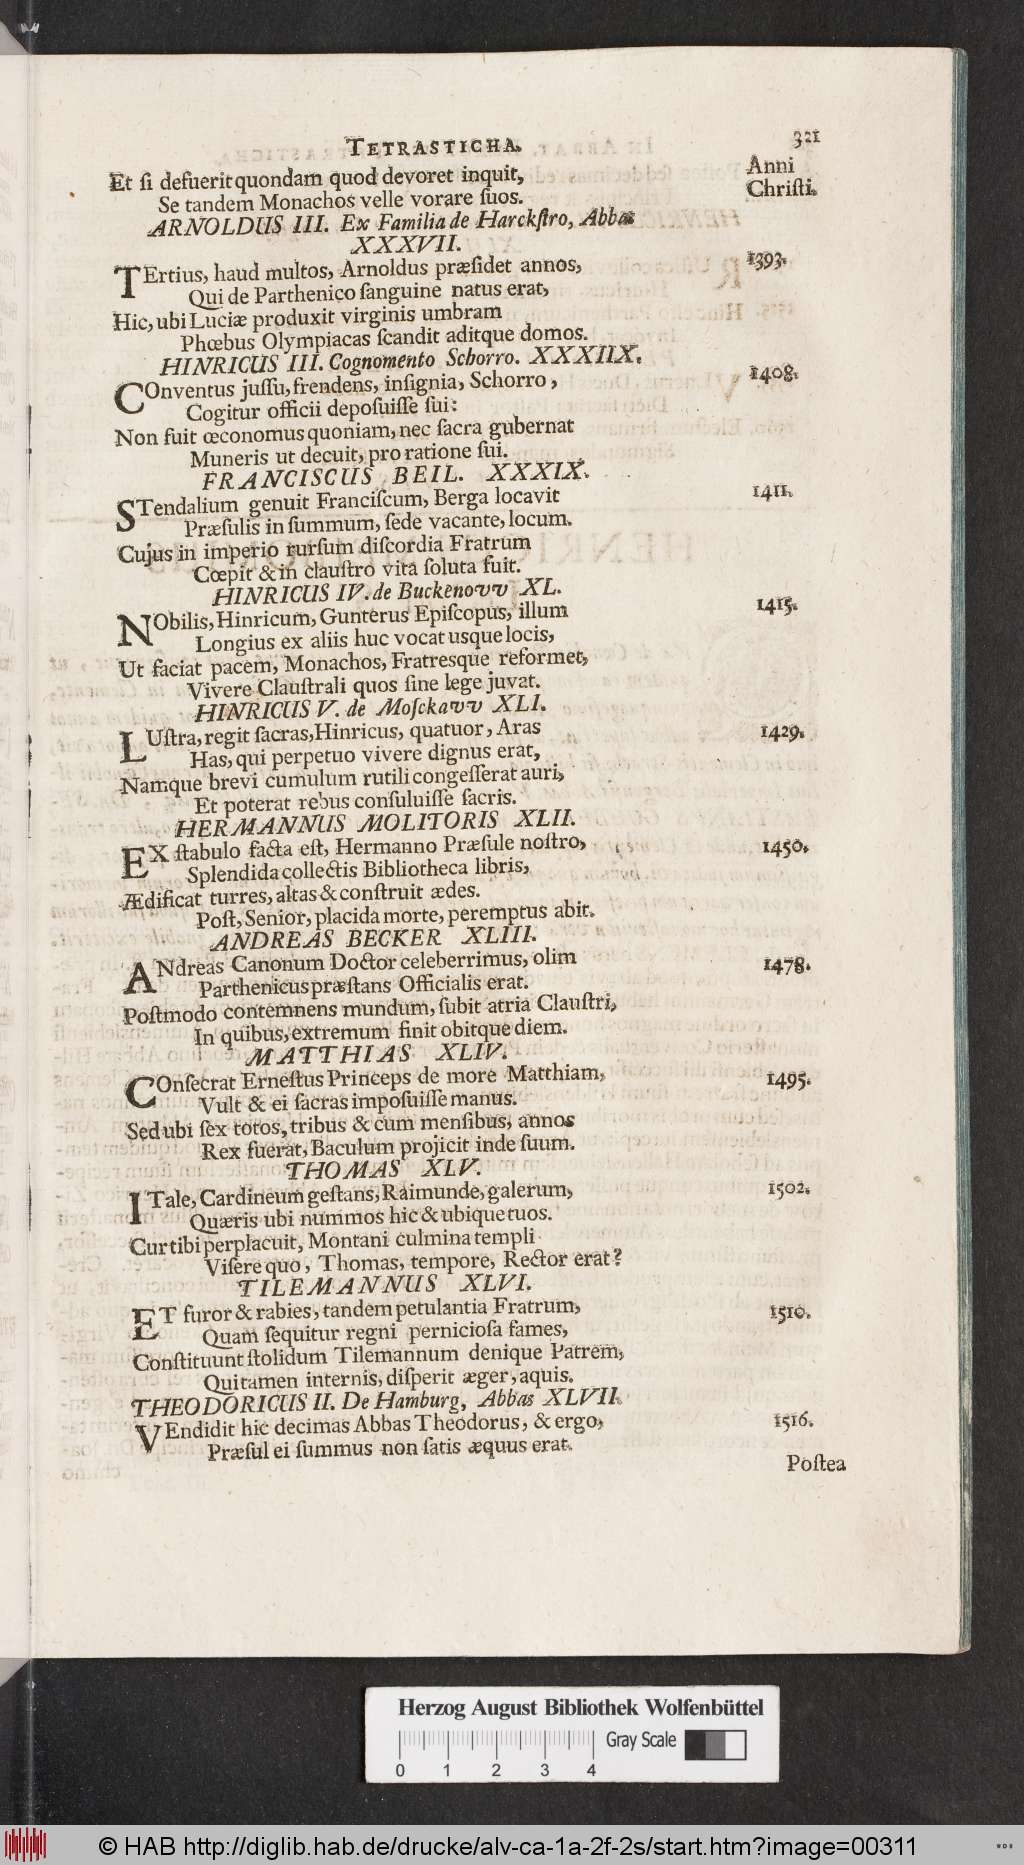 TETRASTICHA.
321
Anni
Christi.
Et ſi defuerit quondam quod devoret inquit,
Se tandem Monachos velle vorare ſuos.
ARNOLDUS III. Ex Familia de Harckſtro, Abbas
XXXVII.
TErtius, haud multos, Arnoldus præſidet annos,
1393.
Qui de Parthenico ſanguine natus erat,
Hic, ubi Luciæ produxit virginis umbram
Phœbus Olympiacas ſcandit aditque domos.
HINRICUS III. Cognomento Schorro. XXXIIX.
COnventus juſſu, frendens, inſignia, Schorro,
1408.
Cogitur officii depoſuiſſe ſui:
Non fuit œconomus quoniam, nec ſacra gubernat
Muneris ut decuit, pro ratione ſui.
FRANCISCUS BEIL. XXXIX.
STendalium genuit Franciſcum, Berga locavit
1411.
Præſulis in ſummum, ſede vacante, locum.
Cujus in imperio rurſum diſcordia Fratrum
Cœpit & in clauſtro vita ſoluta fuit.
HINRICUS IV. de Buckenovv XL.
NObilis, Hinricum, Gunterus Epiſcopus, illum
1415.
Longius ex aliis huc vocat usque locis,
Ut faciat pacem, Monachos, Fratresque reformet,
Vivere Clauſtrali quos ſine lege juvat.
HINRICUS V. de Moſckavv XLI.
LUſtra, regit ſacras, Hinricus, quatuor, Aras
1429.
Has, qui perpetuo vivere dignus erat,
Namque brevi cumulum rutili congeſſerat auri,
Et poterat rebus conſuluiſſe ſacris.
HERMANNUS MOLITORIS XLII.
EX ſtabulo facta eſt, Hermanno Præſule noſtro,
1450.
Splendida collectis Bibliotheca libris,
Ædificat turres, altas & conſtruit ædes.
Poſt, Senior, placida morte, peremptus abit.
ANDREAS BECKER XLIII.
ANdreas Canonum Doctor celeberrimus, olim
1478.
Parthenicus præſtans Officialis erat.
Poſtmodo contemnens mundum, ſubit atria Clauſtri,
In quibus, extremum finit obitque diem.
MATTHIAS XLIV.
COnſecrat Erneſtus Princeps de more Matthiam,
1495.
Vult & ei ſacras impoſuiſſe manus.
Sed ubi ſex totos, tribus & cum menſibus, annos
Rex fuerat, Baculum projicit inde ſuum.
THOMAS XLV.
ITale, Cardineum geſtans, Raimunde, galerum,
1502.
Quæris ubi nummos hic & ubique tuos.
Cur tibi perplacuit, Montani culmina templi
Viſere quo, Thomas, tempore, Rector erat?
TILEMANNUS XLVI.
ET furor & rabies, tandem petulantia Fratrum,
1510.
Quam ſequitur regni pernicioſa fames,
Conſtituunt ſtolidum Tilemannum denique Patrem,
Qui tamen internis, diſperit æger, aquis.
THEODORICUS II. De Hamburg, Abbas XLVII.
VEndidit hic decimas Abbas Theodorus, & ergo,
1516.
Præſul ei ſummus non ſatis æquus erat.
Poſtea
Herzog August Bibliothek Wolfenbüttel
Gray Scale
0 1 2 3 4
© HAB http://diglib.hab.de/drucke/alv-ca-1a-2f-2s/start.htm?image=00311